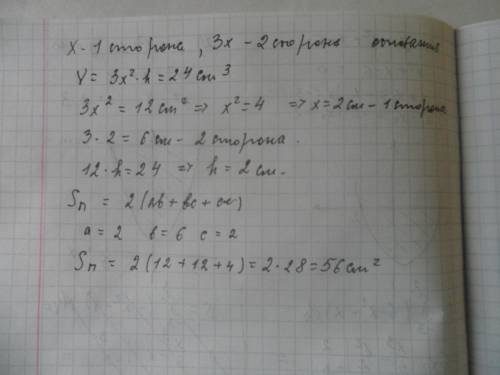 x - 1 сторона, 3x - 2 сторона основания
V = 3x²·h = 24 см³
3x² = 12 см² => x² = 4 => x = 2 см - 1 сторона
3·2 = 6 см - 2 сторона.
12·h = 24 => h = 2 см.
Sп = 2(ab + bc + ac)
a = 2 b = 6 c = 2
Sп = 2(12 + 12 + 4) = 2·28 = 56 см²